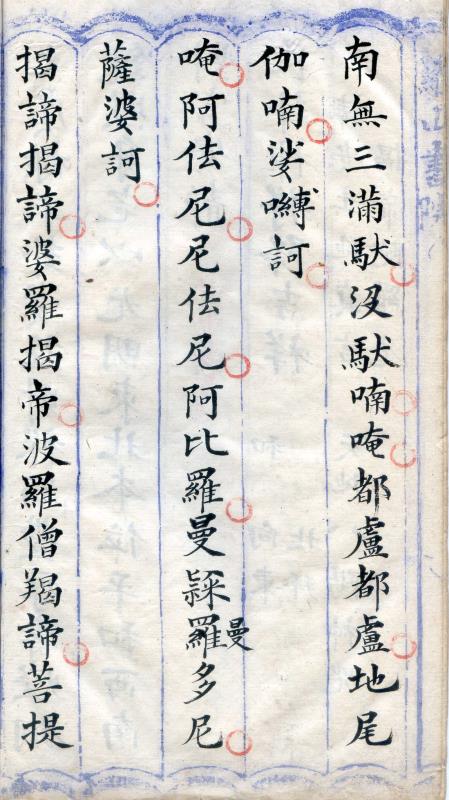 南無三滿馱没馱喃唵都盧都盧地尾
伽喃娑嚩訶
唵阿佉尼尼佉尼阿比羅曼羅曼多尼
薩婆訶
揭諦揭諦婆羅揭帝波羅僧羯諦菩提